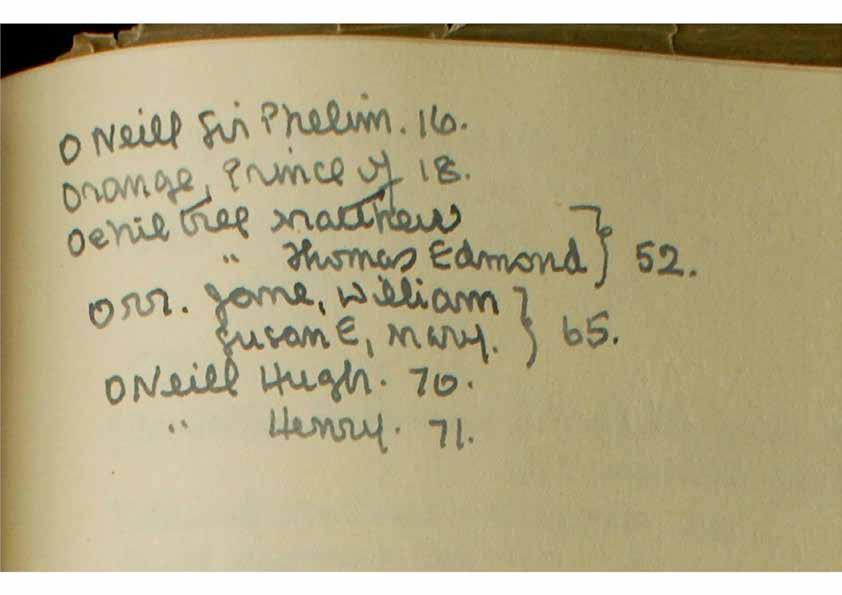 O Neill Sir Phelim. 16.
Orange, Prince of 18.
Ochiltree Matthew
" Thomas Edmond } 52.
Orr. Jane, William
Susan E, Mary. } 65.
O Neill Hugh. 70.
" Henry. 71.